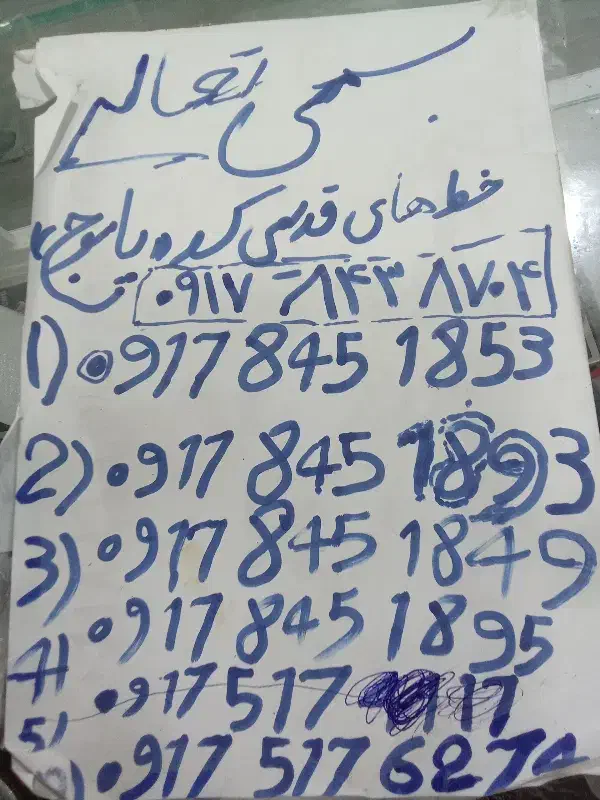 بسمی تعالی
خط های قدیمی کده
۰۹۱۷ ۸۴۳ ۸۷۰۴
1) 0917 845 1853
2) 0917 845 1893
3) 0917 845 1849
4) 0917 845 1895
5) 0917 517 117
) 0917 517 6274